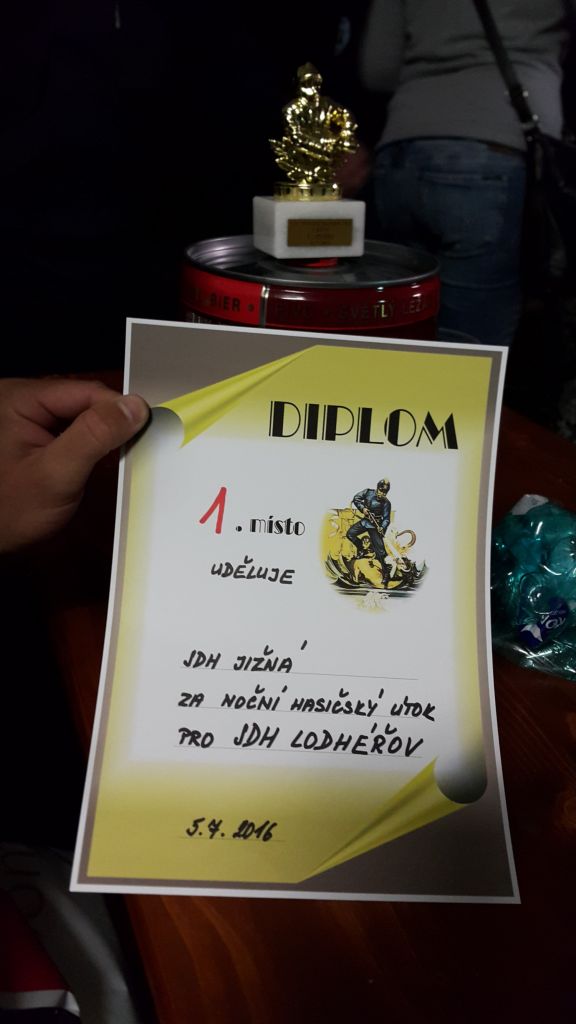 BIER • PIVO • SVĚTLÝ LEŽÁ
DIPLOM
1. místo
UDĚLUJE
SDH JIŽNÁ
ZA NOČNÍ HASIČSKÝ ÚTOK
PRO SDH LODHÉŘOV
5.7. 2016